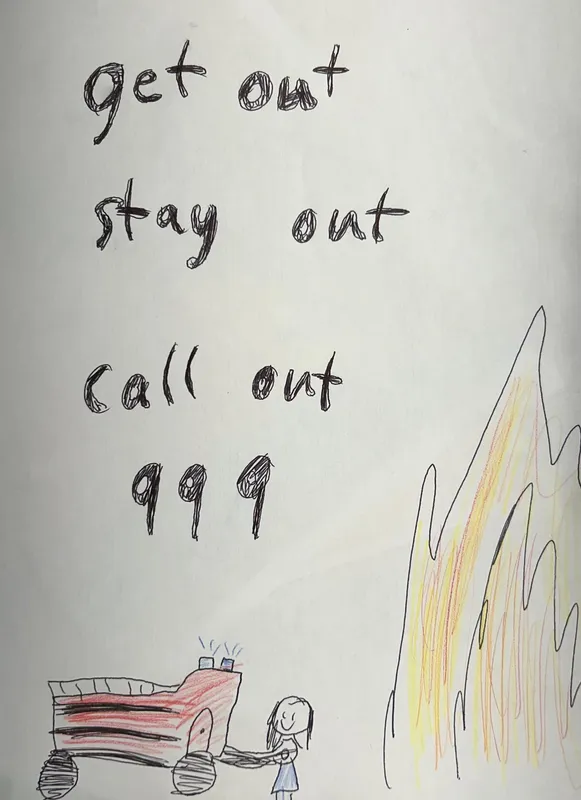 get out
stay out
call out
999